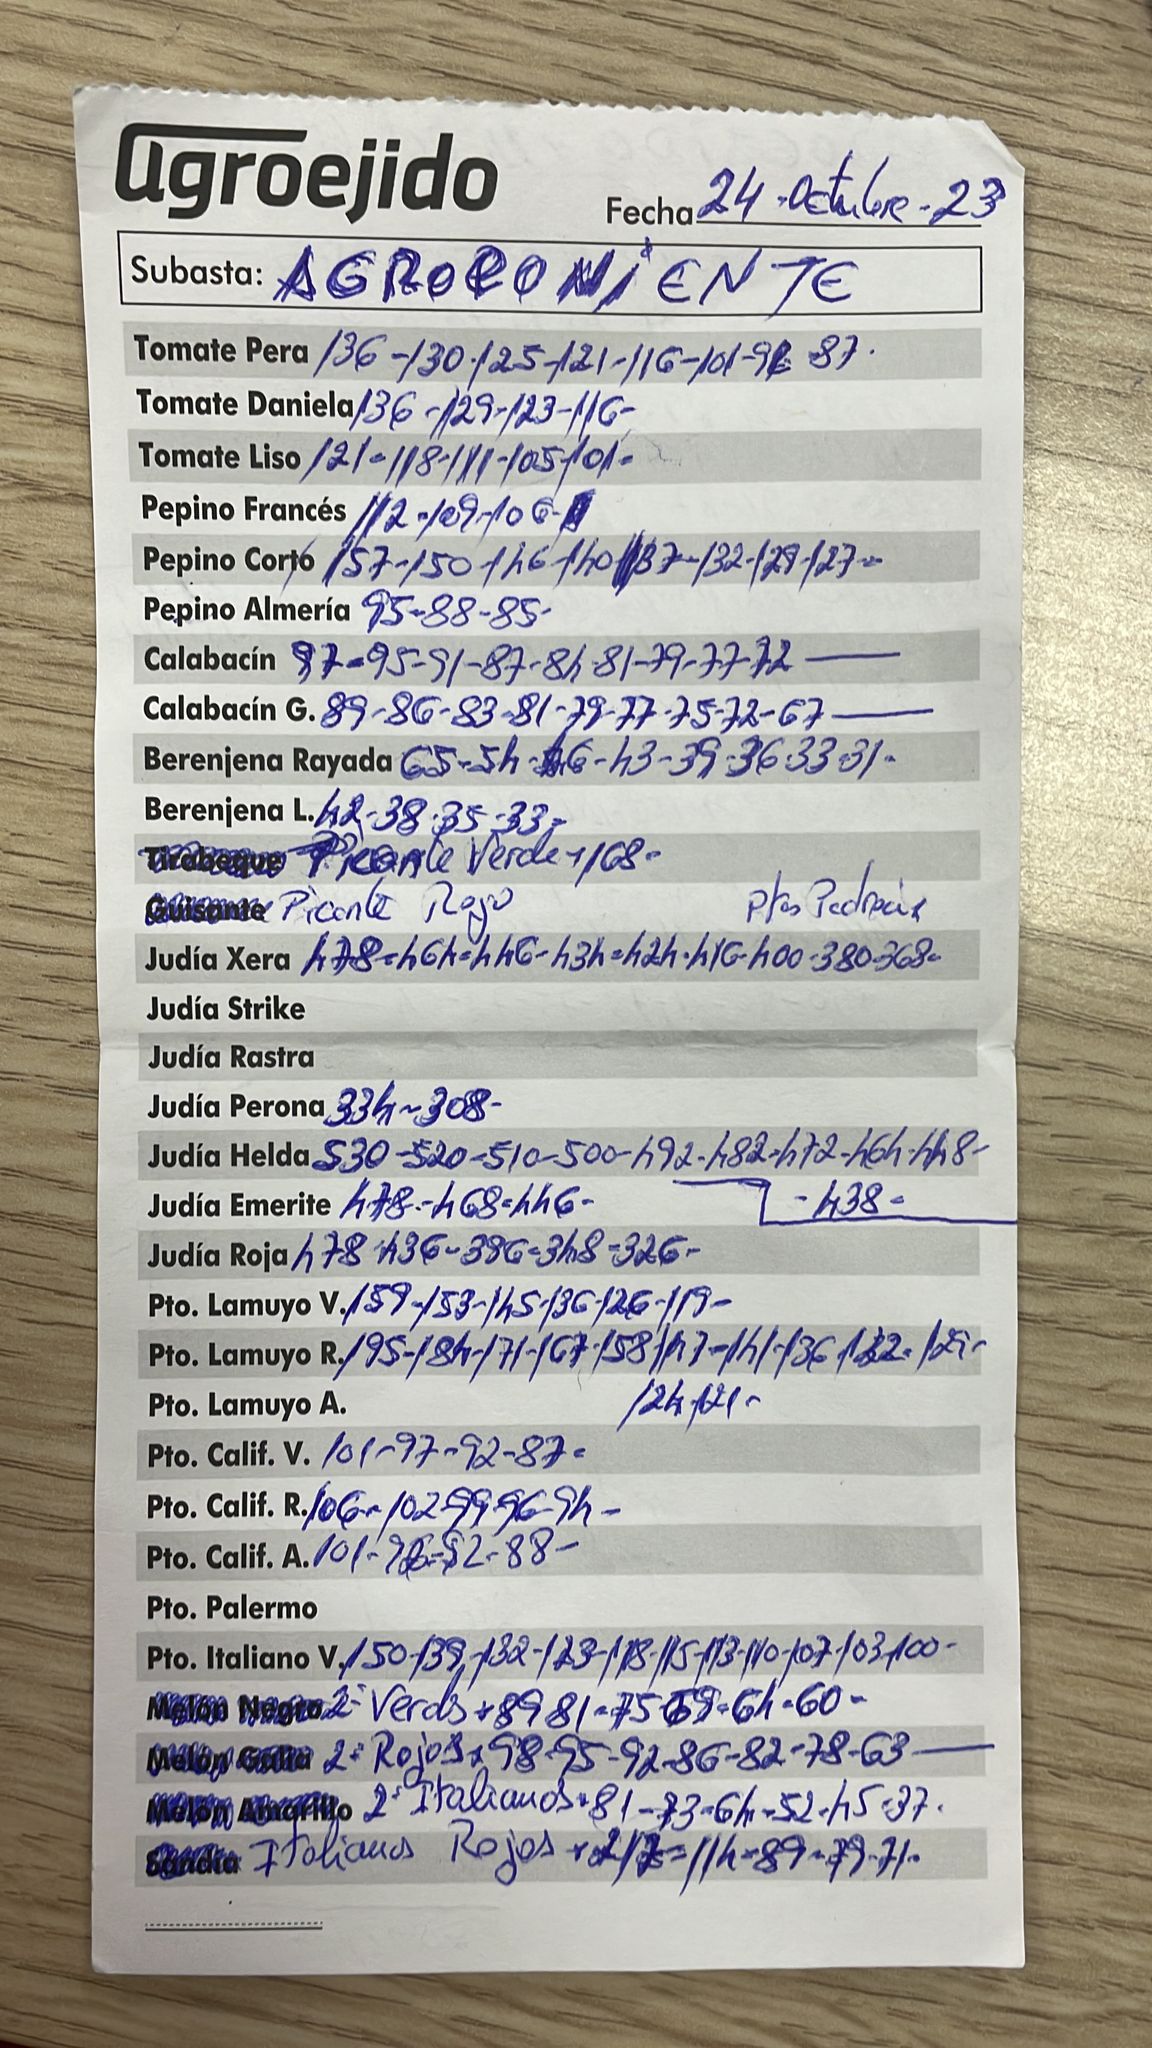 agroejido
Fecha 24-Octubre-23
Subasta: AGROPONIENTE
Tomate Pera 136-130-125-121-116-101-91-87.
Tomate Daniela 136-129-123-116-
Tomate Liso 121-118-111-105-101-
Pepino Francés 112-109-106-
Pepino Corto 157-150-146-140-137-132-129-127-
Pepino Almería 95-88-85-
Calabacín 97-95-91-87-84-81-79-77-72
Calabacín G. 89-86-83-81-79-77-75-72-67
Berenjena Rayada 65-54-46-43-39-36-33-31-
Berenjena L. 42-38-35-33-
Tirabeque Picante Verde + 168-
Guisante Picante Rojo Ptos
Judía Xera 478-464-446-434-424-416-400-380-368-
Judía Strike
Judía Rastra
Judía Perona 334-308-
Judía Helda 530-520-510-500-492-482-472-464-448-
Judía Emerite 478-468-446- -438-
Judía Roja 478-436-396-348-326-
Pto. Lamuyo V. 159-153-145-136-126-119-
Pto. Lamuyo R. 195-184-171-167-158-147-141-136-132-129-
Pto. Lamuyo A. 124-121-
Pto. Calif. V. 101-97-92-87-
Pto. Calif. R. 106-102-99-96-94-
Pto. Calif. A. 101-96-92-88-
Pto. Palermo
Pto. Italiano V. 150-139-132-123-118-115-113-110-107-103-100-
Melón Negro 2ª Verdes + 89-81-75-69-64-60-
Melón Galia 2ª Rojos + 98-95-92-86-82-78-63
Melón Amarillo 2ª Italianos + 81-73-64-52-45-37.
Sandía Italianos Rojos + 217-114-89-79-71-